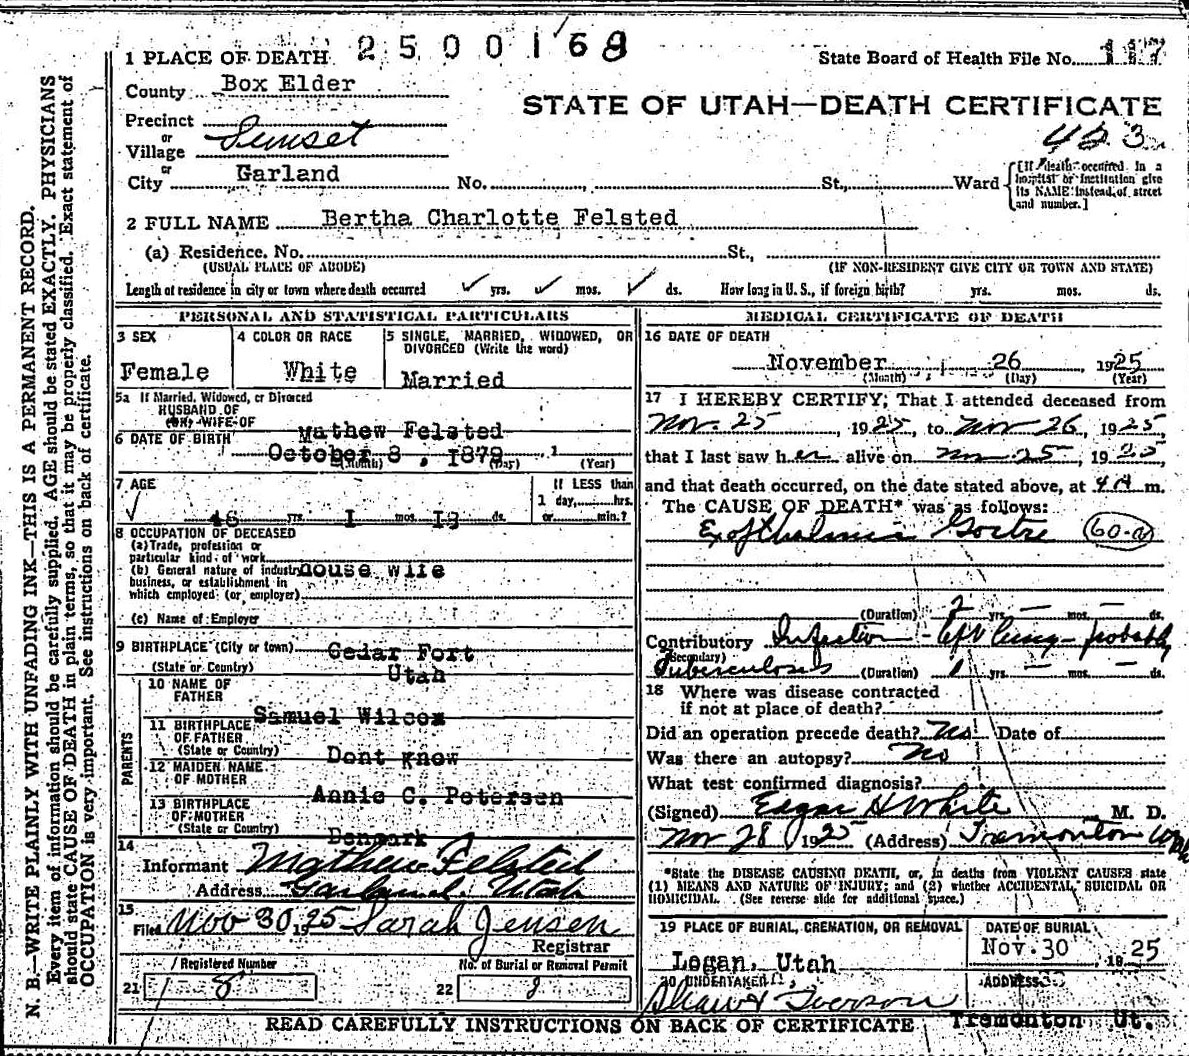 2500168
1 PLACE OF DEATH
State Board of Health File No. 117
County Box Elder
STATE OF UTAH—DEATH CERTIFICATE
Precinct
or
Village Sunset
or
City Garland No. St., Ward
[If death occurred in a hospital or institution give its NAME instead of street and number.]
2 FULL NAME Bertha Charlotte Felsted
(a) Residence. No. St.,
(USUAL PLACE OF ABODE) (IF NON-RESIDENT GIVE CITY OR TOWN AND STATE)
Length of residence in city or town where death occurred ✓ yrs. ✓ mos. ✓ ds. How long in U. S., if foreign birth? yrs. mos. ds.
PERSONAL AND STATISTICAL PARTICULARS
3 SEX 4 COLOR OR RACE 5 SINGLE, MARRIED, WIDOWED, OR
DIVORCED (Write the word)
Female White Married
5a If Married, Widowed, or Divorced
HUSBAND OF
(OR) WIFE OF Mathew Felsted
6 DATE OF BIRTH October 8, 1879
(Month) (Day) (Year)
7 AGE If LESS than
1 day, hrs.
✓ 46 yrs. 1 mos. 18 ds. or min.?
8 OCCUPATION OF DECEASED
(a) Trade, profession or
particular kind of work
(b) General nature of industry House wife
business, or establishment in
which employed (or employer)
(c) Name of Employer
9 BIRTHPLACE (City or town) Cedar Fort
(State or Country) Utah
PARENTS
10 NAME OF
FATHER Samuel Wilcox
11 BIRTHPLACE
OF FATHER
(State or Country) Dont know
12 MAIDEN NAME
OF MOTHER Annie C. Petersen
13 BIRTHPLACE
OF MOTHER
(State or Country) Denmark
14
Informant Mathew Felsted
Address Garland, Utah
15
Filed Nov 30 1925 Sarah Jensen
Registrar
Registered Number No. of Burial or Removal Permit
21 8 22
MEDICAL CERTIFICATE OF DEATH
16 DATE OF DEATH
November 26 1925
(Month) (Day) (Year)
17 I HEREBY CERTIFY, That I attended deceased from
Nov. 25, 1925, to Nov 26, 1925
that I last saw her alive on Nov 25, 1925,
and that death occurred, on the date stated above, at 4 A m.
The CAUSE OF DEATH* was as follows:
Exofthalmic Goitre 60-a
(Duration) 2 yrs. — mos. — ds.
Contributory Infection - left lung - probably
(Secondary)
Tuberculosis (Duration) 1 yrs. — mos. — ds.
18 Where was disease contracted
if not at place of death?
Did an operation precede death? No Date of
Was there an autopsy? No
What test confirmed diagnosis?
(Signed) Edgar H White M. D.
Nov 28, 1925 (Address) Tremonton Utah
*State the DISEASE CAUSING DEATH, or, in deaths from VIOLENT CAUSES state
(1) MEANS AND NATURE OF INJURY; and (2) whether ACCIDENTAL, SUICIDAL OR
HOMICIDAL. (See reverse side for additional space.)
19 PLACE OF BURIAL, CREMATION, OR REMOVAL DATE OF BURIAL
Logan, Utah Nov. 30 1925
20 UNDERTAKER ADDRESS
Shaw & Iverson Tremonton Ut.
READ CAREFULLY INSTRUCTIONS ON BACK OF CERTIFICATE
N. B.—WRITE PLAINLY WITH UNFADING INK—THIS IS A PERMANENT RECORD.
Every item of information should be carefully supplied. AGE should be stated EXACTLY. PHYSICIANS
should state CAUSE OF DEATH in plain terms, so that it may be properly classified. Exact statement of
OCCUPATION is very important. See instructions on back of certificate.